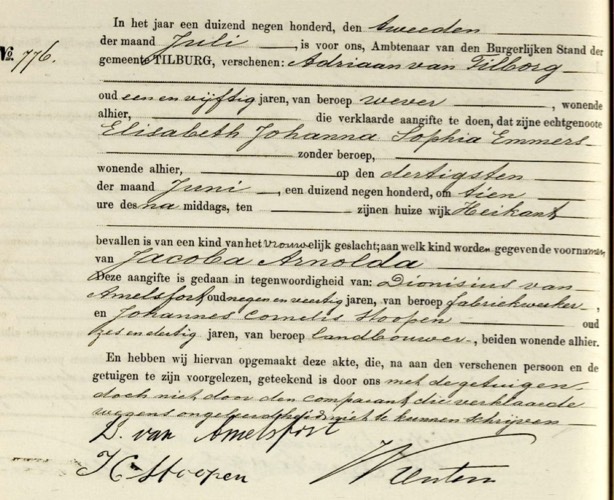 In het jaar een duizend negen honderd, den tweeden
der maand Juli, is voor ons, Ambtenaar van den Burgerlijken Stand der
No. 776.
gemeente TILBURG, verschenen: Adriaan van Tilborg
oud een en vijftig jaren, van beroep wever, wonende
alhier, die verklaarde aangifte te doen, dat zijne echtgenoote
Elisabeth Johanna Sophia Emmers
zonder beroep,
wonende alhier, op den dertigsten
der maand Juni, een duizend negen honderd, om tien
ure des na middags, ten zijnen huize wijk Heikant
bevallen is van een kind van het vrouwelijk geslacht; aan welk kind worden gegeven de voornamen
van Jacoba Arnolda
Deze aangifte is gedaan in tegenwoordigheid van: Dionisius van
Amelsfort oud negen en veertig jaren, van beroep fabriekwerker,
en Johannes Cornelis Stoopen oud
zes en dertig jaren, van beroep landbouwer, beiden wonende alhier.
En hebben wij hiervan opgemaakt deze akte, die, na aan den verschenen persoon en de
getuigen te zijn voorgelezen, geteekend is door ons met de getuigen,
doch niet door den comparant, die verklaarde
wegens ongeleerdheid niet te kunnen schrijven
D. van Amelsfort
J C Stoopen